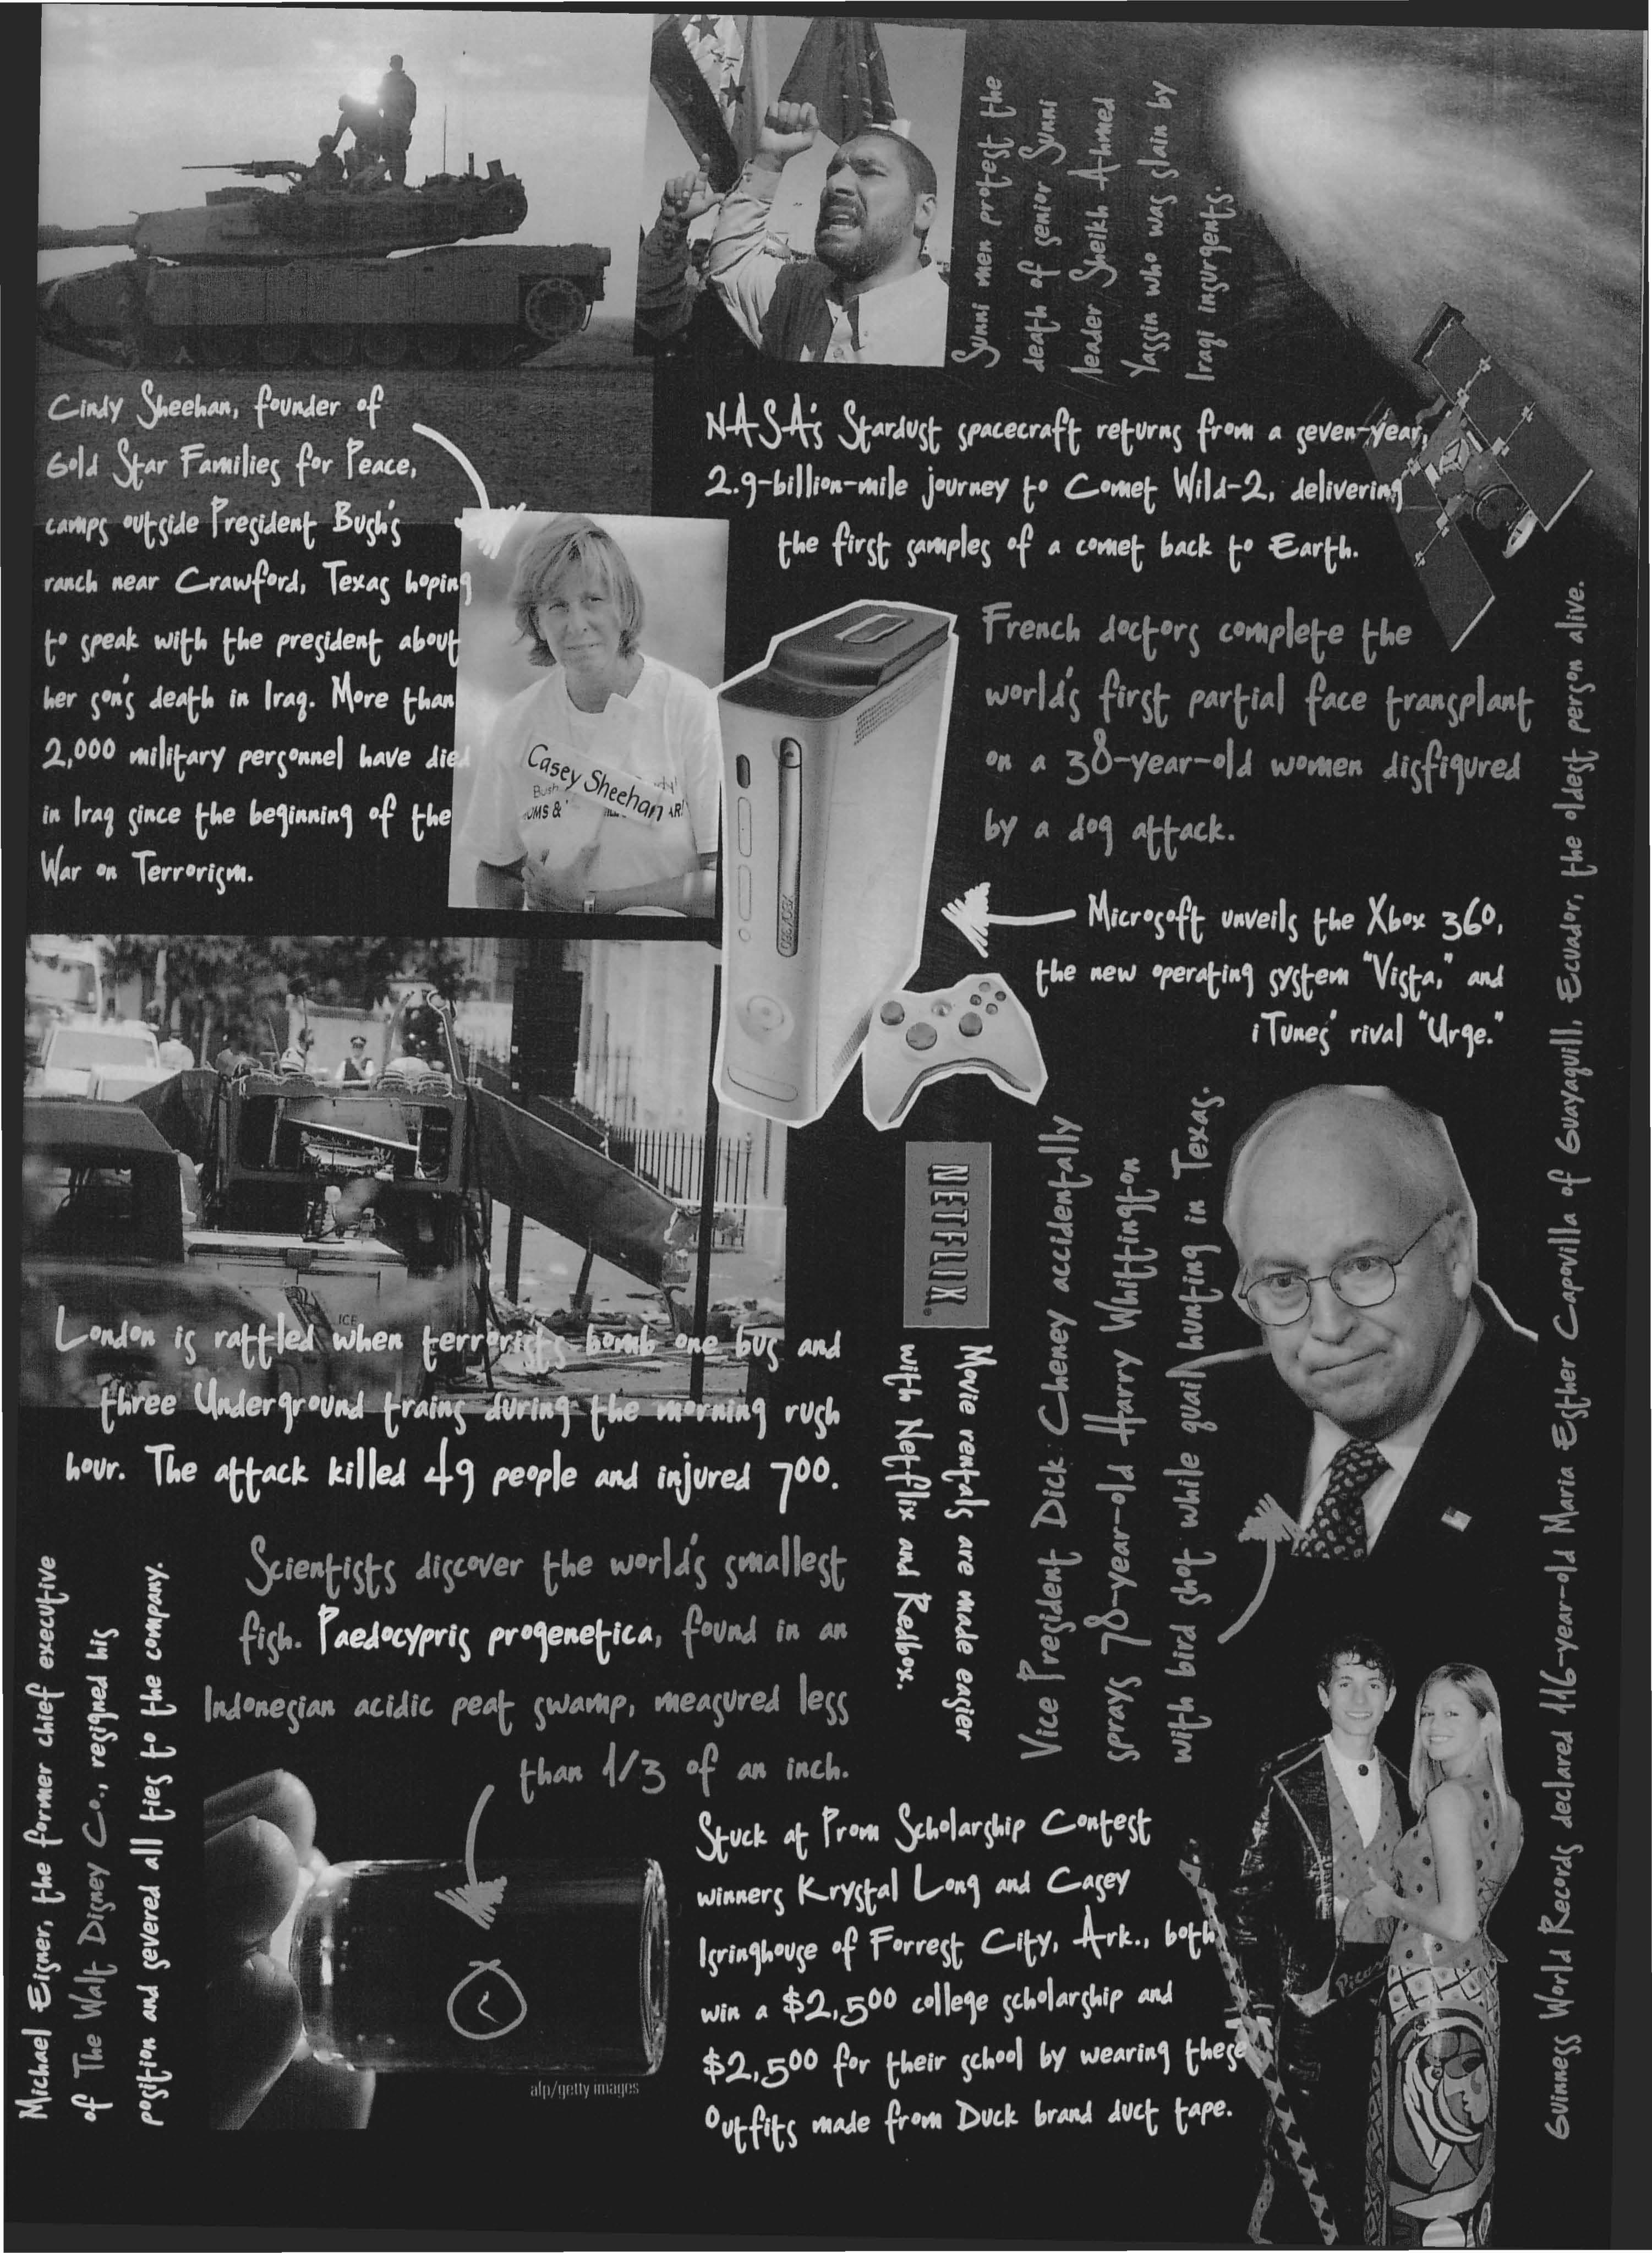 Sunni men protest the
death of senior Sunni
leader Sheikh Ahmed
Yassin who was slain by
Iraqi insurgents.
Cindy Sheehan, founder of
Gold Star Families for Peace,
camps outside President Bush's
ranch near Crawford, Texas hoping
to speak with the president about
her son's death in Iraq. More than
2,000 military personnel have died
in Iraq since the beginning of the
War on Terrorism.
NASA's Stardust spacecraft returns from a seven-year,
2.9-billion-mile journey to Comet Wild-2, delivering
the first samples of a comet back to Earth.
Casey Sheehan
Bush
OMS &
AR!
French doctors complete the
world's first partial face transplant
on a 38-year-old women disfigured
by a dog attack.
XBOX 360
Microsoft unveils the Xbox 360,
the new operating system "Vista," and
iTunes' rival "Urge."
ICE
London is rattled when terrorists bomb one bus and
three Underground trains during the morning rush
hour. The attack killed 49 people and injured 700.
NETFLIX
Movie rentals are made easier
with Netflix and Redbox.
Vice President Dick Cheney accidentally
sprays 78-year-old Harry Whittington
with bird shot while quail hunting in Texas.
Guinness World Records declared 116-year-old Maria Esther Capovilla of Guayaquill, Ecuador, the oldest person alive.
Michael Eisner, the former chief executive
of The Walt Disney Co., resigned his
position and severed all ties to the company.
Scientists discover the world's smallest
fish. Paedocypris progenetica, found in an
Indonesian acidic peat swamp, measured less
than 1/3 of an inch.
afp/getty images
Stuck at Prom Scholarship Contest
winners Krystal Long and Casey
Isringhouse of Forrest City, Ark., both
win a $2,500 college scholarship and
$2,500 for their school by wearing these
outfits made from Duck brand duct tape.
Picasso